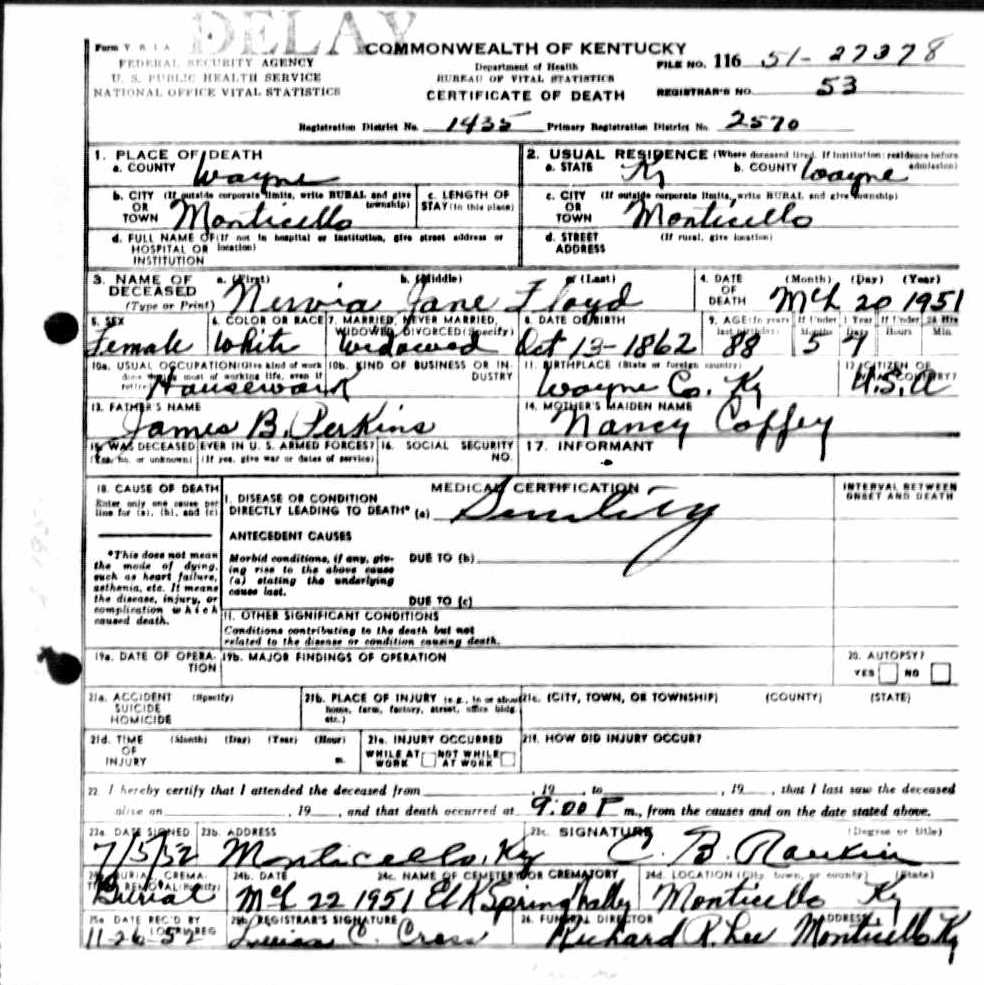 DELAY
Form V. S. 1 A
FEDERAL SECURITY AGENCY
U. S. PUBLIC HEALTH SERVICE
NATIONAL OFFICE VITAL STATISTICS
COMMONWEALTH OF KENTUCKY
Department of Health
BUREAU OF VITAL STATISTICS
CERTIFICATE OF DEATH
FILE NO. 116 51-27378
REGISTRAR'S NO. 53
Registration District No. 1435 Primary Registration District No. 2570
1. PLACE OF DEATH
a. COUNTY Wayne
2. USUAL RESIDENCE (Where deceased lived. If institution: residence before admission)
a. STATE Ky b. COUNTY Wayne
b. CITY OR TOWN (If outside corporate limits, write RURAL and give township) Monticello
c. LENGTH OF STAY (in this place)
c. CITY OR TOWN (If outside corporate limits, write RURAL and give township) Monticello
d. FULL NAME OF HOSPITAL OR INSTITUTION (If not in hospital or institution, give street address or location)
d. STREET ADDRESS (If rural, give location)
3. NAME OF DECEASED (Type or Print) a. (First) b. (Middle) c. (Last)
Nervia Jane Floyd
4. DATE OF DEATH (Month) (Day) (Year)
Mch 20 1951
5. SEX Female
6. COLOR OR RACE White
7. MARRIED, NEVER MARRIED, WIDOWED, DIVORCED (Specify) Widowed
8. DATE OF BIRTH Oct 13-1862
9. AGE (In years last birthday) 88
If Under 1 Year Months 5 Days 7
If Under 24 Hrs Hours Min.
10a. USUAL OCCUPATION (Give kind of work done during most of working life, even if retired) Housework
10b. KIND OF BUSINESS OR INDUSTRY
11. BIRTHPLACE (State or foreign country) Wayne Co. Ky
12. CITIZEN OF WHAT COUNTRY? U.S.A
13. FATHER'S NAME
James B. Perkins
14. MOTHER'S MAIDEN NAME
Nancy Coffey
15. WAS DECEASED EVER IN U. S. ARMED FORCES?
(Yes, no, or unknown) (If yes, give war or dates of service)
16. SOCIAL SECURITY NO.
17. INFORMANT
18. CAUSE OF DEATH
Enter only one cause per line for (a), (b), and (c)
MEDICAL CERTIFICATION
INTERVAL BETWEEN ONSET AND DEATH
I. DISEASE OR CONDITION DIRECTLY LEADING TO DEATH* (a) Senility
*This does not mean the mode of dying, such as heart failure, asthenia, etc. It means the disease, injury, or complication which caused death.
ANTECEDENT CAUSES
Morbid conditions, if any, giving rise to the above cause (a) stating the underlying cause last.
DUE TO (b)
DUE TO (c)
II. OTHER SIGNIFICANT CONDITIONS
Conditions contributing to the death but not related to the disease or condition causing death.
19a. DATE OF OPERATION
19b. MAJOR FINDINGS OF OPERATION
20. AUTOPSY?
YES NO
21a. ACCIDENT SUICIDE HOMICIDE (Specify)
21b. PLACE OF INJURY (e.g., in or about home, farm, factory, street, office bldg. etc.)
21c. (CITY, TOWN, OR TOWNSHIP) (COUNTY) (STATE)
21d. TIME OF INJURY (Month) (Day) (Year) (Hour) m.
21e. INJURY OCCURRED
WHILE AT WORK NOT WHILE AT WORK
21f. HOW DID INJURY OCCUR?
22. I hereby certify that I attended the deceased from , 19 , to , 19 , that I last saw the deceased
alive on , 19 , and that death occurred at 9:00 P m., from the causes and on the date stated above.
23a. DATE SIGNED 23b. ADDRESS 23c. SIGNATURE (Degree or title)
7/5/52 Monticello, Ky C. B. Rankin
24a. BURIAL, CREMATION, REMOVAL (Specify) Burial
24b. DATE Mch 22 1951
24c. NAME OF CEMETERY OR CREMATORY Elk Spring Valley
24d. LOCATION (City, town, or county) (State) Monticello Ky
25a. DATE REC'D BY LOCAL REG 11-26-52
25b. REGISTRAR'S SIGNATURE C. Cress
26. FUNERAL DIRECTOR ADDRESS
Richard R. Lee Monticello Ky